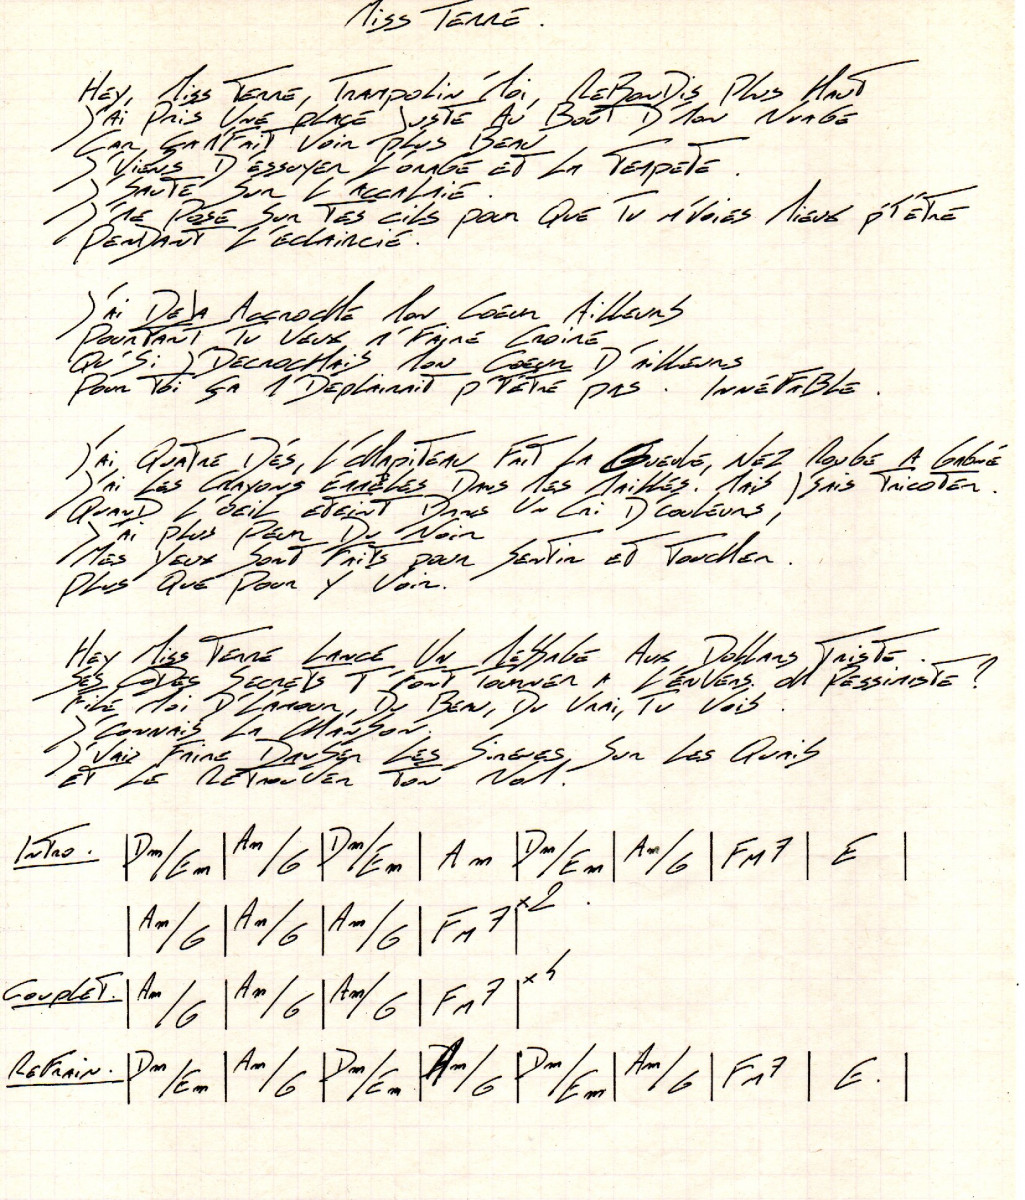 Miss Terre.
Hey, Miss Terre, Trampolin'moi, Rebondis plus haut
J'ai pris une place juste au bout d'mon nuage
Car, ça m'fait voir plus beau
J'viens d'essuyer l'orage et la tempete.
J'saute sur l'accalmie.
J'me pose sur tes cils pour que tu m'voies mieux p't'être
Pendant l'eclaircie.
J'ai deja accroché mon coeur ailleurs
Pourtant tu veux m'faire croire
Qu'si j'decrochais mon coeur d'ailleurs
Pour toi ça m'deplairait p't'être pas. Innéfable.
J'ai quatre dés, l'chapiteau fait la gueule, nez rouge a gagné
J'ai les crayons emmêles dans mes mailles. Mais j'sais tricoter.
Quand l'oeil eteint dans un cri d'couleurs,
J'ai plus peur du noir
Mes yeux sont faits pour sentir et toucher.
Plus que pour y voir.
Hey Miss Terre lance un message aux dollars triste.
Ses codes secrets t'font tourner a l'envers. Oh pessimiste?
File moi d'l'amour, du beau, du vrai, tu vois.
J'connais la chanson.
J'vais faire danser les sirenes sur les quais
et le retrouver ton nom.
Intro. | Dm/Em | Am/G | Dm/Em | Am | Dm/Em | Am/G | FM7 | E |
| Am/G | Am/G | Am/G | FM7 | x2.
Couplet. | Am/G | Am/G | Am/G | FM7 | x4
Refrain. | Dm/Em | Am/G | Dm/Em | Am/G | Dm/Em | Am/G | FM7 | E. |